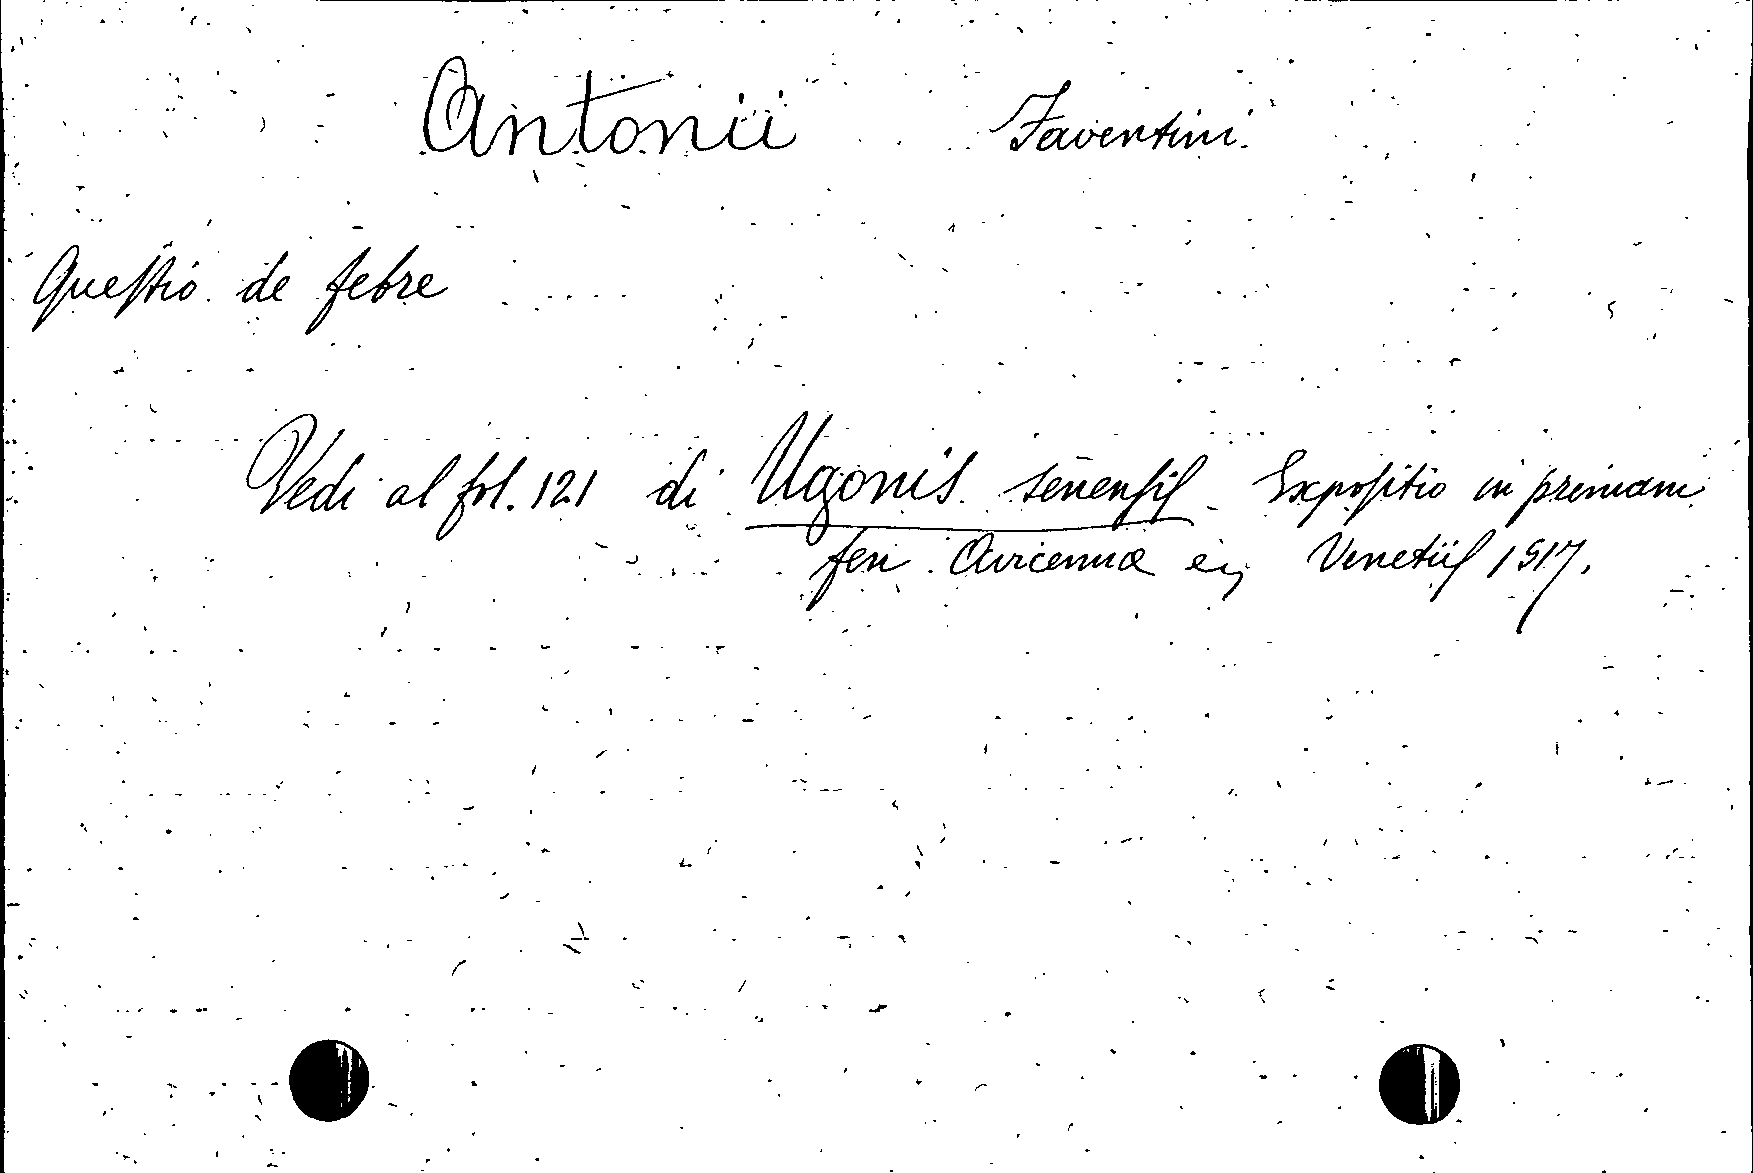 Antonii Faventini.
Queſtio de febre
Vedi al fol. 121 di Ugonis senenſiſ Expoſitio in primam
fen Avicennæ Venetiiſ 1517.